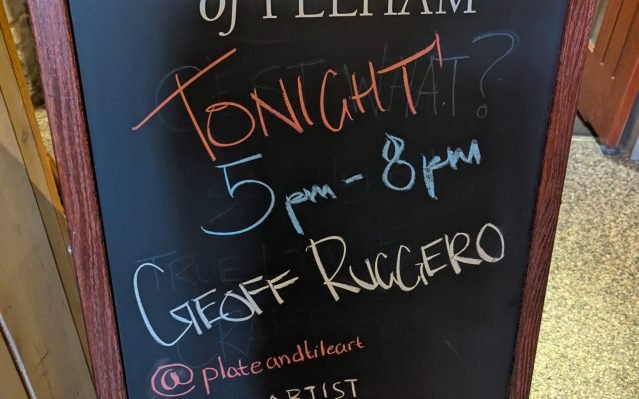 of PELHAM
C'EST WHAT?
TONIGHT
5pm - 8pm
GEOFF RUGGERO
@plateandtileart
ARTIST